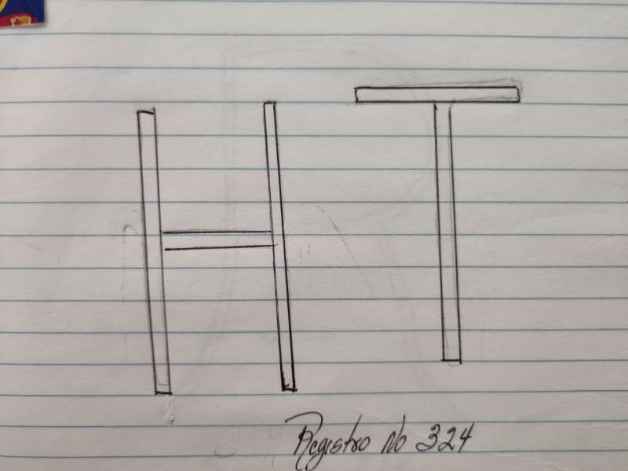 HT
Registro No 324